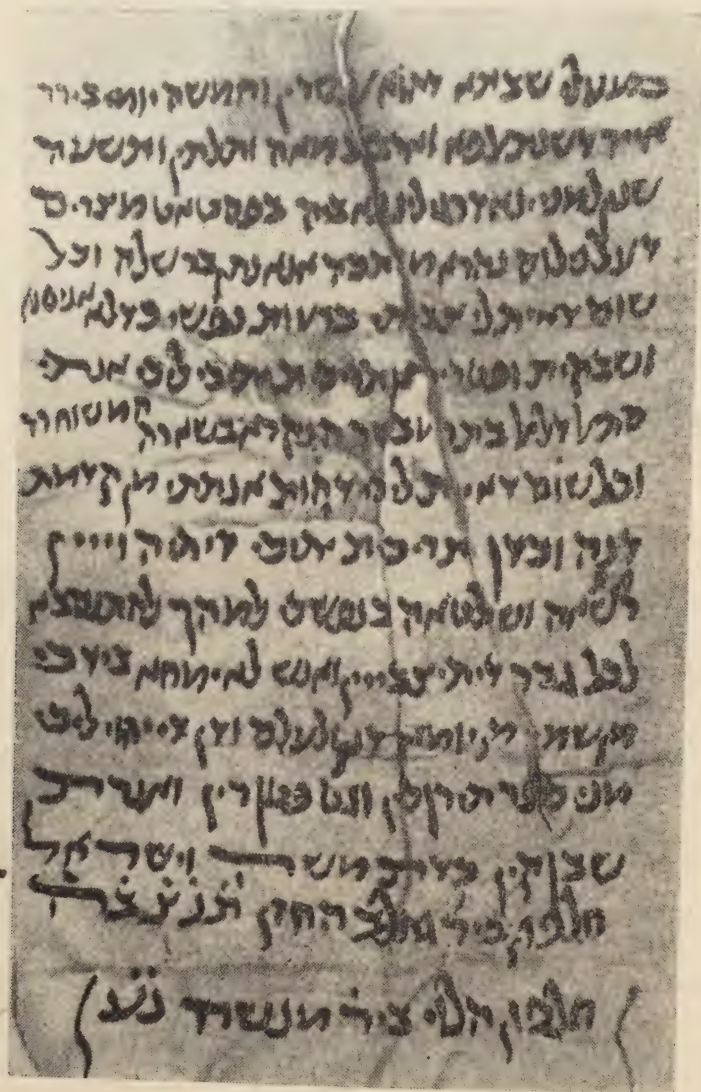 במעלי שבתא דהוא עשרין וחמשה יומין בירח
אייר דשנת אלפא וארבע מאה ותלתין ותשעה
שנין למניינא דרגילנא ביה בפסטאט מצרים
דעל נילוס נהרא מותבה אנא נתן בר שלמה וכל
שום דאית לי צביתי ברעות נפשי בדלא אניסנא
ושבקית ופטרית ותריכית יתיכי ליכי אנתי
דלאל
וכל שום דאית לה דהות אנתתי מן קדמת
דנה וכדן תריכית יתיכי דיתיהוייין
רשאה ושלטאה בנפשיכי למהך להתנסבא
לכל גבר דיתיצבייין ואנש לא ימחא בידכי
מן יומא דנן ולעלם ודן דייהוי ליכי
מני ספר תרוכין וגט פטורין ואגרת
שבוקין כדת משה וישראל
חלפון ביר גאלב החזן תׄנׄצׄבׄהׄ
חלפון הלוי ביר מנשה נׄעׄ